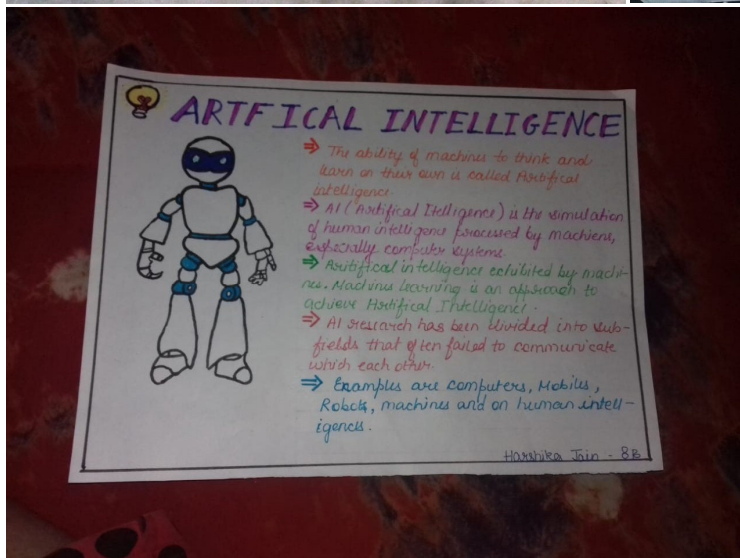 ARTFICAL INTELLIGENCE
⇒ The ability of machines to think and
learn on their own is called Artifical
intelligence.
⇒ AI (Artifical Itelligence) is the simulation
of human intelligence processed by machiens,
especially computer systems.
⇒ Aritifical intelligence exhibited by machi-
nes. Machines learning is an approach to
achieve Artifical Intelligence.
⇒ AI research has been divided into sub-
fields that often failed to communicate
which each other.
⇒ Examples are computers, Mobiles,
Robots, machines and on human intell-
igences.
Harshika Jain - 8B